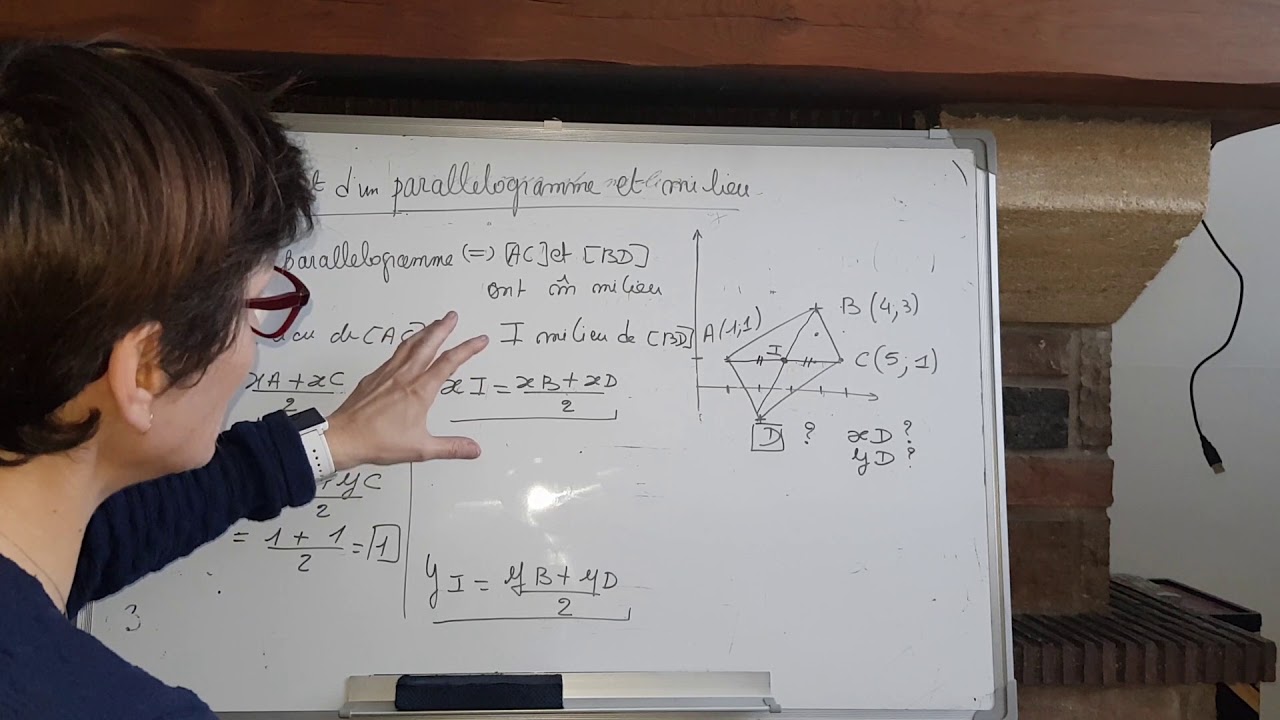 d'un parallelogramme et milieu
parallelogramme (=) [AC] et [BD]
ont m̂ milieu
de [AC]
I milieu de [BD]
xA + xC
2
xI = xB + xD
2
yC
2
= 1 + 1 = 1
2
yI = yB + yD
2
3
A (1;1)
B (4,3)
I
C (5;1)
D ?
xD ?
yD ?